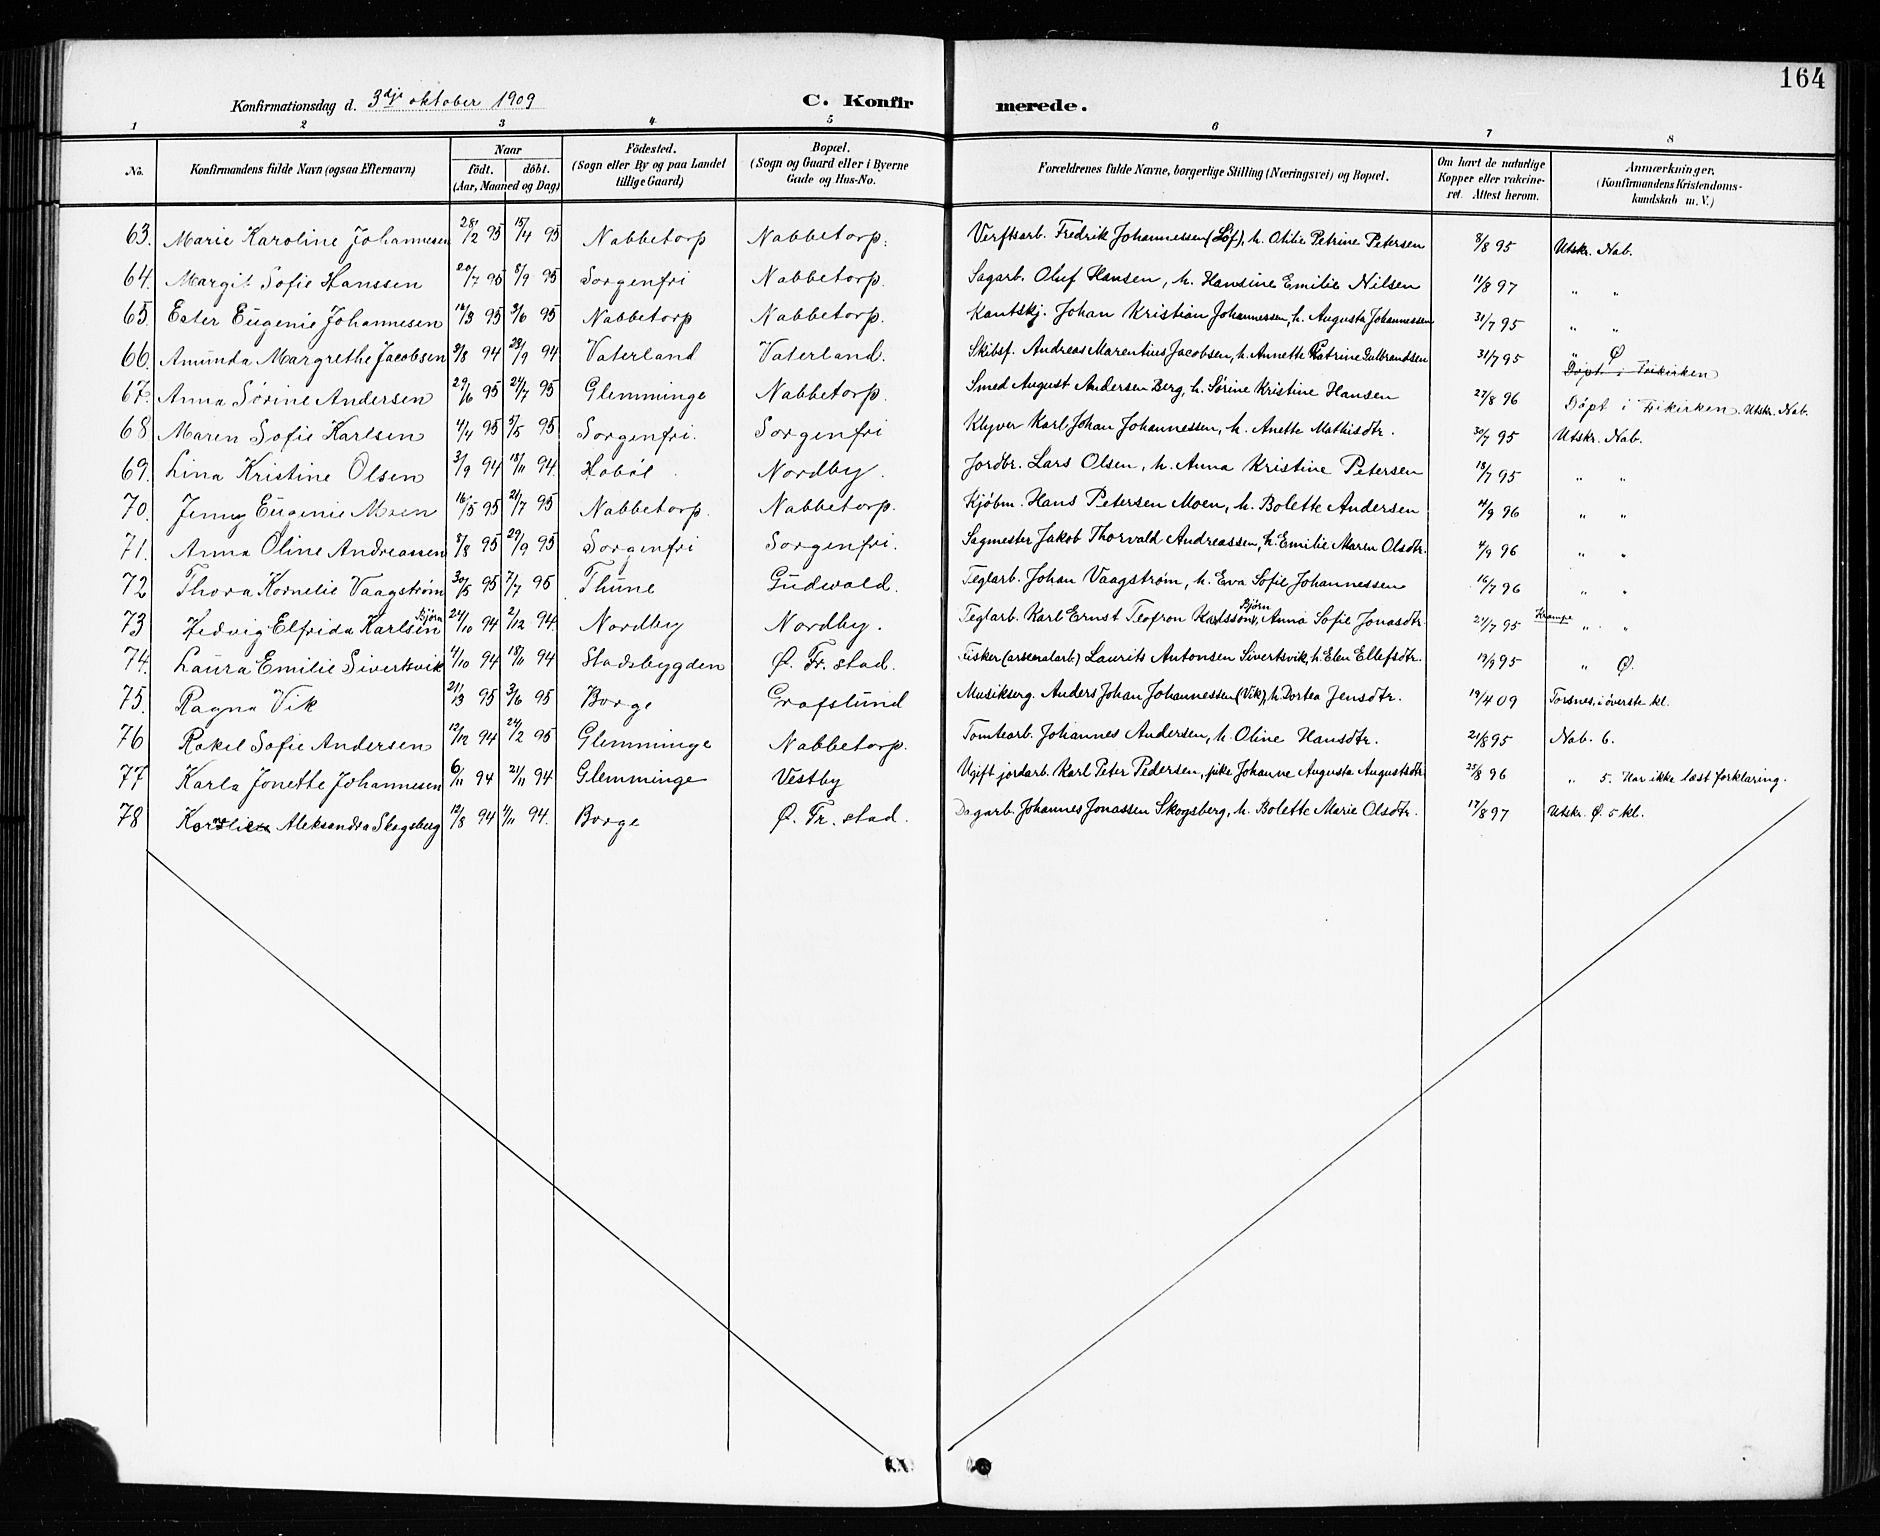 164
Konfirmationsdag d. 3dje oktober 1909 C. Konfirmerede.
1 2 3 4 5 6 7 8
No. Konfirmandens fulde Navn (ogsaa Efternavn) Naar født. døbt. (Aar, Maaned og Dag) Fødested. (Sogn eller By og paa Landet tillige Gaard) Bopæl. (Sogn og Gaard eller i Byerne Gade og Hus-No. Forældrenes fulde Navne, borgerlige Stilling (Næringsvei) og Bopæl. Om havt de naturlige Kopper eller vakcineret. Attest herom. Anmærkninger. (Konfirmandens Kristendomskundskab m. V.)
63. Marie Karoline Johannesen 28/2 95 15/4 95 Nabbetorp Nabbetorp. Verftsarb. Fredrik Johannessen (Löf), h. Otilie Petrine Petersen 8/8 95 Utskr. Nab.
64. Margit Sofie Hanssen 20/7 95 8/9 95 Sorgenfri Nabbetorp. Sagarb. Oluf Hansen, h. Hansine Emilie Nilsen 11/8 97 " "
65. Ester Eugenie Johannesen 18/3 95 3/6 95 Nabbetorp Nabbetorp. Kantskj. Johan Kristian Johannessen, h. Augusta Johannessen 31/7 95 " "
66. Amunda Margrethe Jacobsen 9/8 94 23/9 94 Vaterland Vaterland. Skibsf. Andreas Marentius Jacobsen, h. Annette Katrine Gulbrandsen 31/7 95 " Ø
Döpt i Frikirken
67. Anna Sörine Andersen 29/6 95 21/7 95 Glemminge Nabbetorp. Smed August Andersen Berg, h. Sörine Kristine Hansen 27/8 96 Döpt i Frikirken Utskr. Nab.
68 Maren Sofie Karlsen 4/4 95 5/5 95 Sorgenfri. Sorgenfri Klyver Karl Johan Johannessen, h. Anette Mathisdtr. 30/7 95 Utskr. Nab.
69. Lina Kristine Olsen 3/9 94 18/11 94. Hobøl. Nordby. Jordbr. Lars Olsen, h. Anna Kristine Petersen 18/7 95 " "
70. Jenny Eugenie Moen 16/5 95 21/7 95 Nabbetorp. Nabbetorp. Kjøbm. Hans Petersen Moen, h. Bolette Andersen 4/9 96 " "
71. Anna Oline Andreassen 8/8 95 29/9 95 Sorgenfri Sorgenfri. Sagmester Jakob Thorvald Andreassen, h. Emilie Maren Olsdtr. 4/9 96 " "
72 Thora Kornelie Vaagström 30/5 95 7/7 95 Thune Gudevold. Teglarb. Johan Vaagstrøm, h. Eva Sofie Johannessen 16/7 96 " "
73 Hedvig Elfrida Karlsen Björn 21/10 94 2/12 94. Nordby Nordby. Teglarb. Karl Ernst Teofron Karlsson Björn, Anna Sofie Jonasdtr. 24/7 95 Krampe " "
74. Laura Emilie Sivertsvik 4/10 94 18/11 94 Stadsbygden Ø. Fr. stad. Fisker (arsenalarb.) Laurits Antonsen Sivertsvik, h. Elen Ellefsdtr. 19/9 95 " Ø.
75. Ragna Vik 21/3 95 3/6 95 Borge Grafslund Musikserg. Anders Johan Johannessen (Vik), h. Dortea Jensdtr. 19/4 09 Torsnes, i överste kl.
76 Rakel Sofie Andersen 12/12 94 24/2 95 Glemminge Nabbetorp. Tomtearb. Johannes Andersen, h. Oline Hansdtr. 21/8 95 Nab. 6.
77 Karla Jonette Johannesen 6/11 94 21/11 94 Glemminge Vestby Ugift jordarb. Karl Peter Pedersen, pike Johanne Augusta Augustsdtr. 25/8 96 " 5. Har ikke læst forklaring.
78 Aleksandra Skogsberg 12/8 94 4/11 94. Borge Ø. Fr. stad. Dagarb. Johannes Jonassen Skogsberg, h. Bolette Marie Olsdtr. 17/8 97 Utskr. Ø. 5 kl.